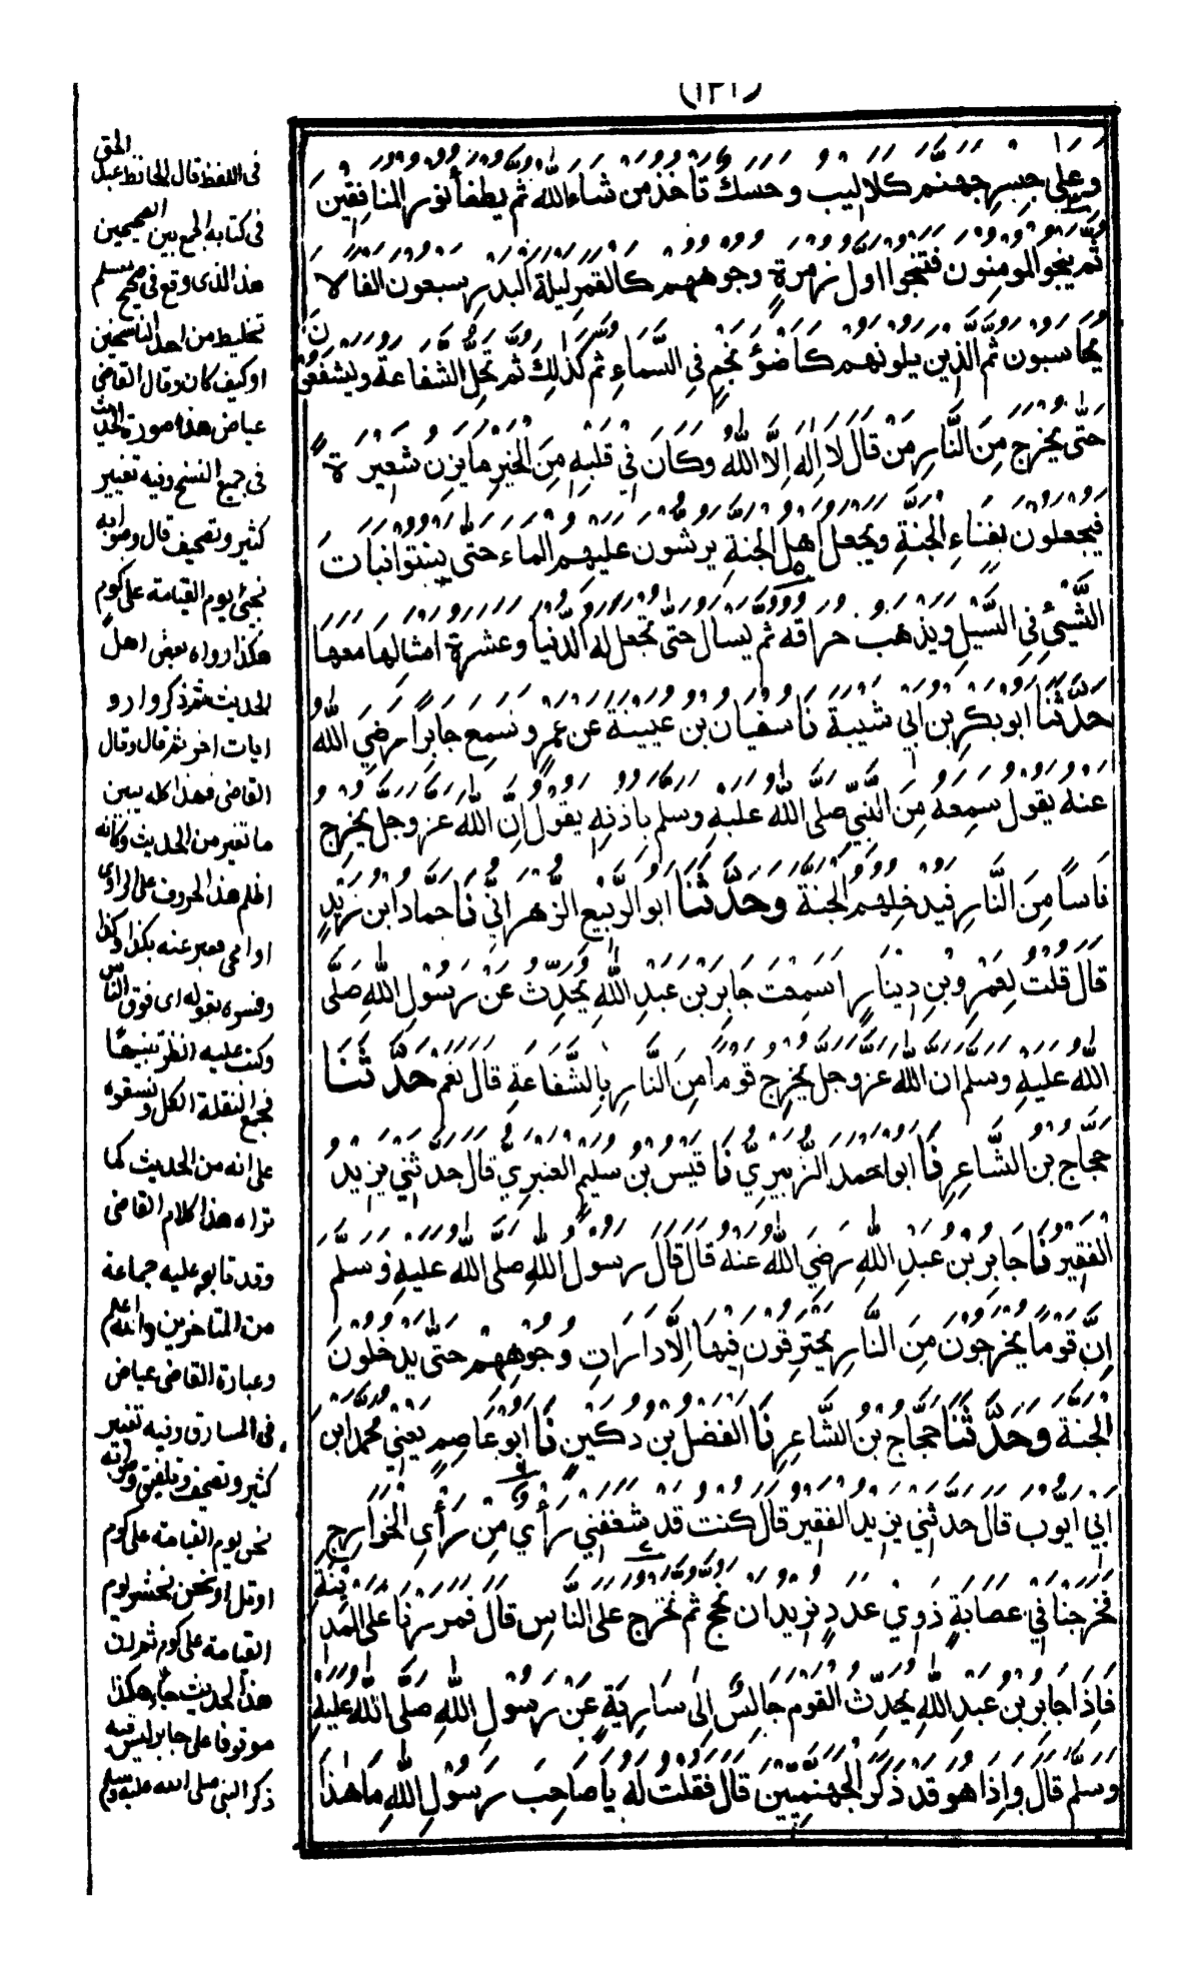 (١٣١)
وعلى جسر جهنم كلاليب وحسك تاخذ من شاء الله ثم يطفأ نور المنافقين
ثم ينجو المومنون فتنجوا اول زمرة وجوههم كالقمر ليلة البدر سبعون الفا لا
يحاسبون ثم الذين يلونهم كاضوؤ نجم في السماء ثم كذلك ثم تحل الشفاعة ويشفعون
حتى يخرج من النار من قال لا اله الا الله وكان في قلبه من الخير ما يزن شعيرة
فيجعلون بفناء الجنة ويجعل اهل الجنة يرشون عليهم الماء حتى ينبتوا نبات
الشيئ في السيل ويذهب حراقه ثم يسأل حتى تجعل له الدنيا وعشرة امثالها معها
حدثنا ابو بكر بن ابي شيبة نا سفيان بن عيينة عن عمرو سمع جابرا رضي الله
عنه يقول سمعه من النبي صلى الله عليه وسلم باذنه يقول ان الله عز وجل يخرج
ناسا من النار فيدخلهم الجنة وحدثنا ابو الربيع الزهراني نا حماد ابن زيد
قال قلت لعمرو بن دينار اسمعت جابر بن عبد الله يحدث عن رسول الله صلى
الله عليه وسلم ان الله عز وجل يخرج قوما من النار بالشفاعة قال نعم حدثنا
حجاج بن الشاعر نا ابو احمد الزبيري نا قيس بن سليم العنبري قال حدثني يزيد
الفقير نا جابر بن عبد الله رضي الله عنه قال قال رسول الله صلى الله عليه وسلم
ان قوما يخرجون من النار يحترقون فيها الا دارات وجوههم حتى يدخلون
الجنة وحدثنا حجاج بن الشاعر نا الفضل بن دكين نا ابو عاصم يعني محمد ابن
ابي ايوب قال حدثني يزيد الفقير قال كنت قد شغفني رأي من رأي الخوارج
فخرجنا في عصابة ذوي عدد نريد ان نحج ثم نخرج على الناس قال فمررنا على المدينة
فاذا جابر بن عبد الله يحدث القوم جالس الى سارية عن رسول الله صلى الله عليه
وسلم قال واذا هو قد ذكر الجهنميين قال فقلت له يا صاحب رسول الله ما هذا
فى اللفظ قال الحافظ عبد الحق
فى كتابه الجمع بين الصحيحين
هذا الذى وقع فى صحيح مسلم
تخليط من احد الناسخين
او كيف كان وقال القاضى
عياض هذه صورة الحديث
فى جميع النسخ وفيه تغيير
كثير وتصحيف قال وصوابه
نجئ يوم القيامة على كوم
هكذا رواه بعض اهل
الحديث ثم ذكروا رو
ايات اخر ثم قال وقال
القاضى فهذا كله يبين
ما تغير من الحديث وكانه
اظلم هذا الحروف على الراوى
او امحى فعبر عنه بكذا وكذا
وفسره بقوله اى فوق الناس
وكتب عليه انظر تنبيها
فجمع النقلة الكل ونسقوه
على انه من الحديث كما
تراه هذا كلام القاضى
وقد تابعه عليه جماعة
من المتاخرين والله اعلم
وعبارة القاضى عياض
فى المشارق وفيه تغيير
كثير وتصحيف وتلفيق وصورته
نحن يوم القيامة على كوم
او تل او نحن نحشر يوم
القيامة على كوم ثم ان
هذا الحديث جاء هكذا
موقوفا على جابر ليس فيه
ذكر النبى صلى الله عليه وسلم